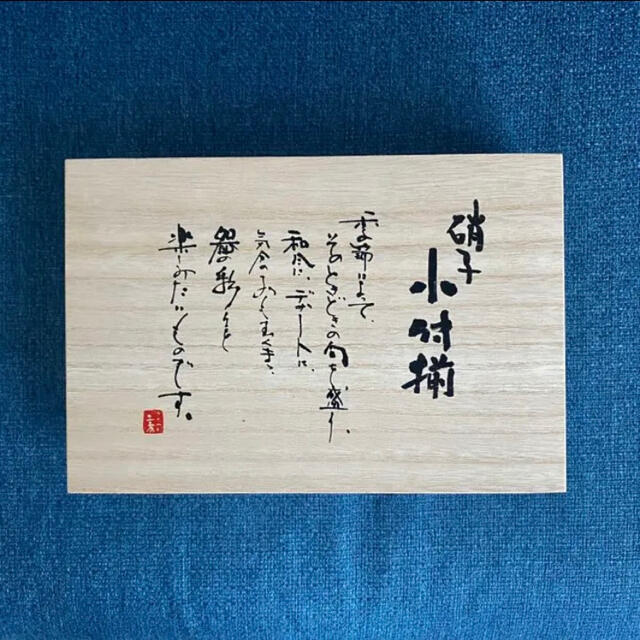 硝子
小付揃
季節によって、
そのときどきの旬を盛り、
和風に、デザートに、
器の彩りを
楽しみたいものです。